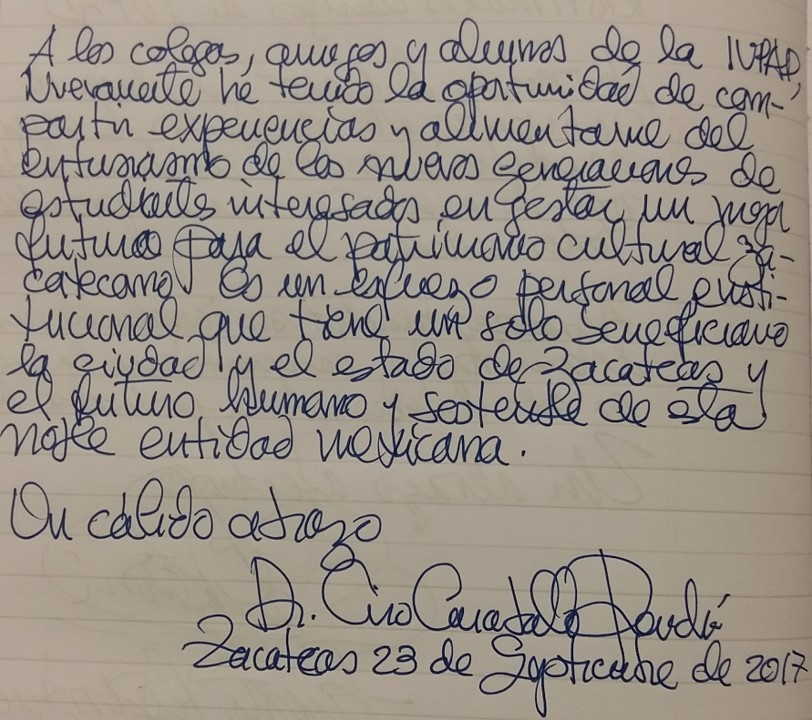 A los colegas, amigos y alumnos de la
Nuevamente he tenido la oportunidad de com-
partir experiencias y alimentarme del
entusiasmo de las nuevas generaciones de
estudiantes interesados en gestar un mejor
futuro para el patrimonio cultural za-
catecano. Es un esfuerzo personal e insti-
tucional que tiene un solo beneficiario
la ciudad y el estado de Zacatecas y
el futuro humano y sostenible de esta
noble entidad mexicana.
Un cálido abrazo
Dr. Ciro Caraballo Perichi
Zacatecas 23 de Septiembre de 2017